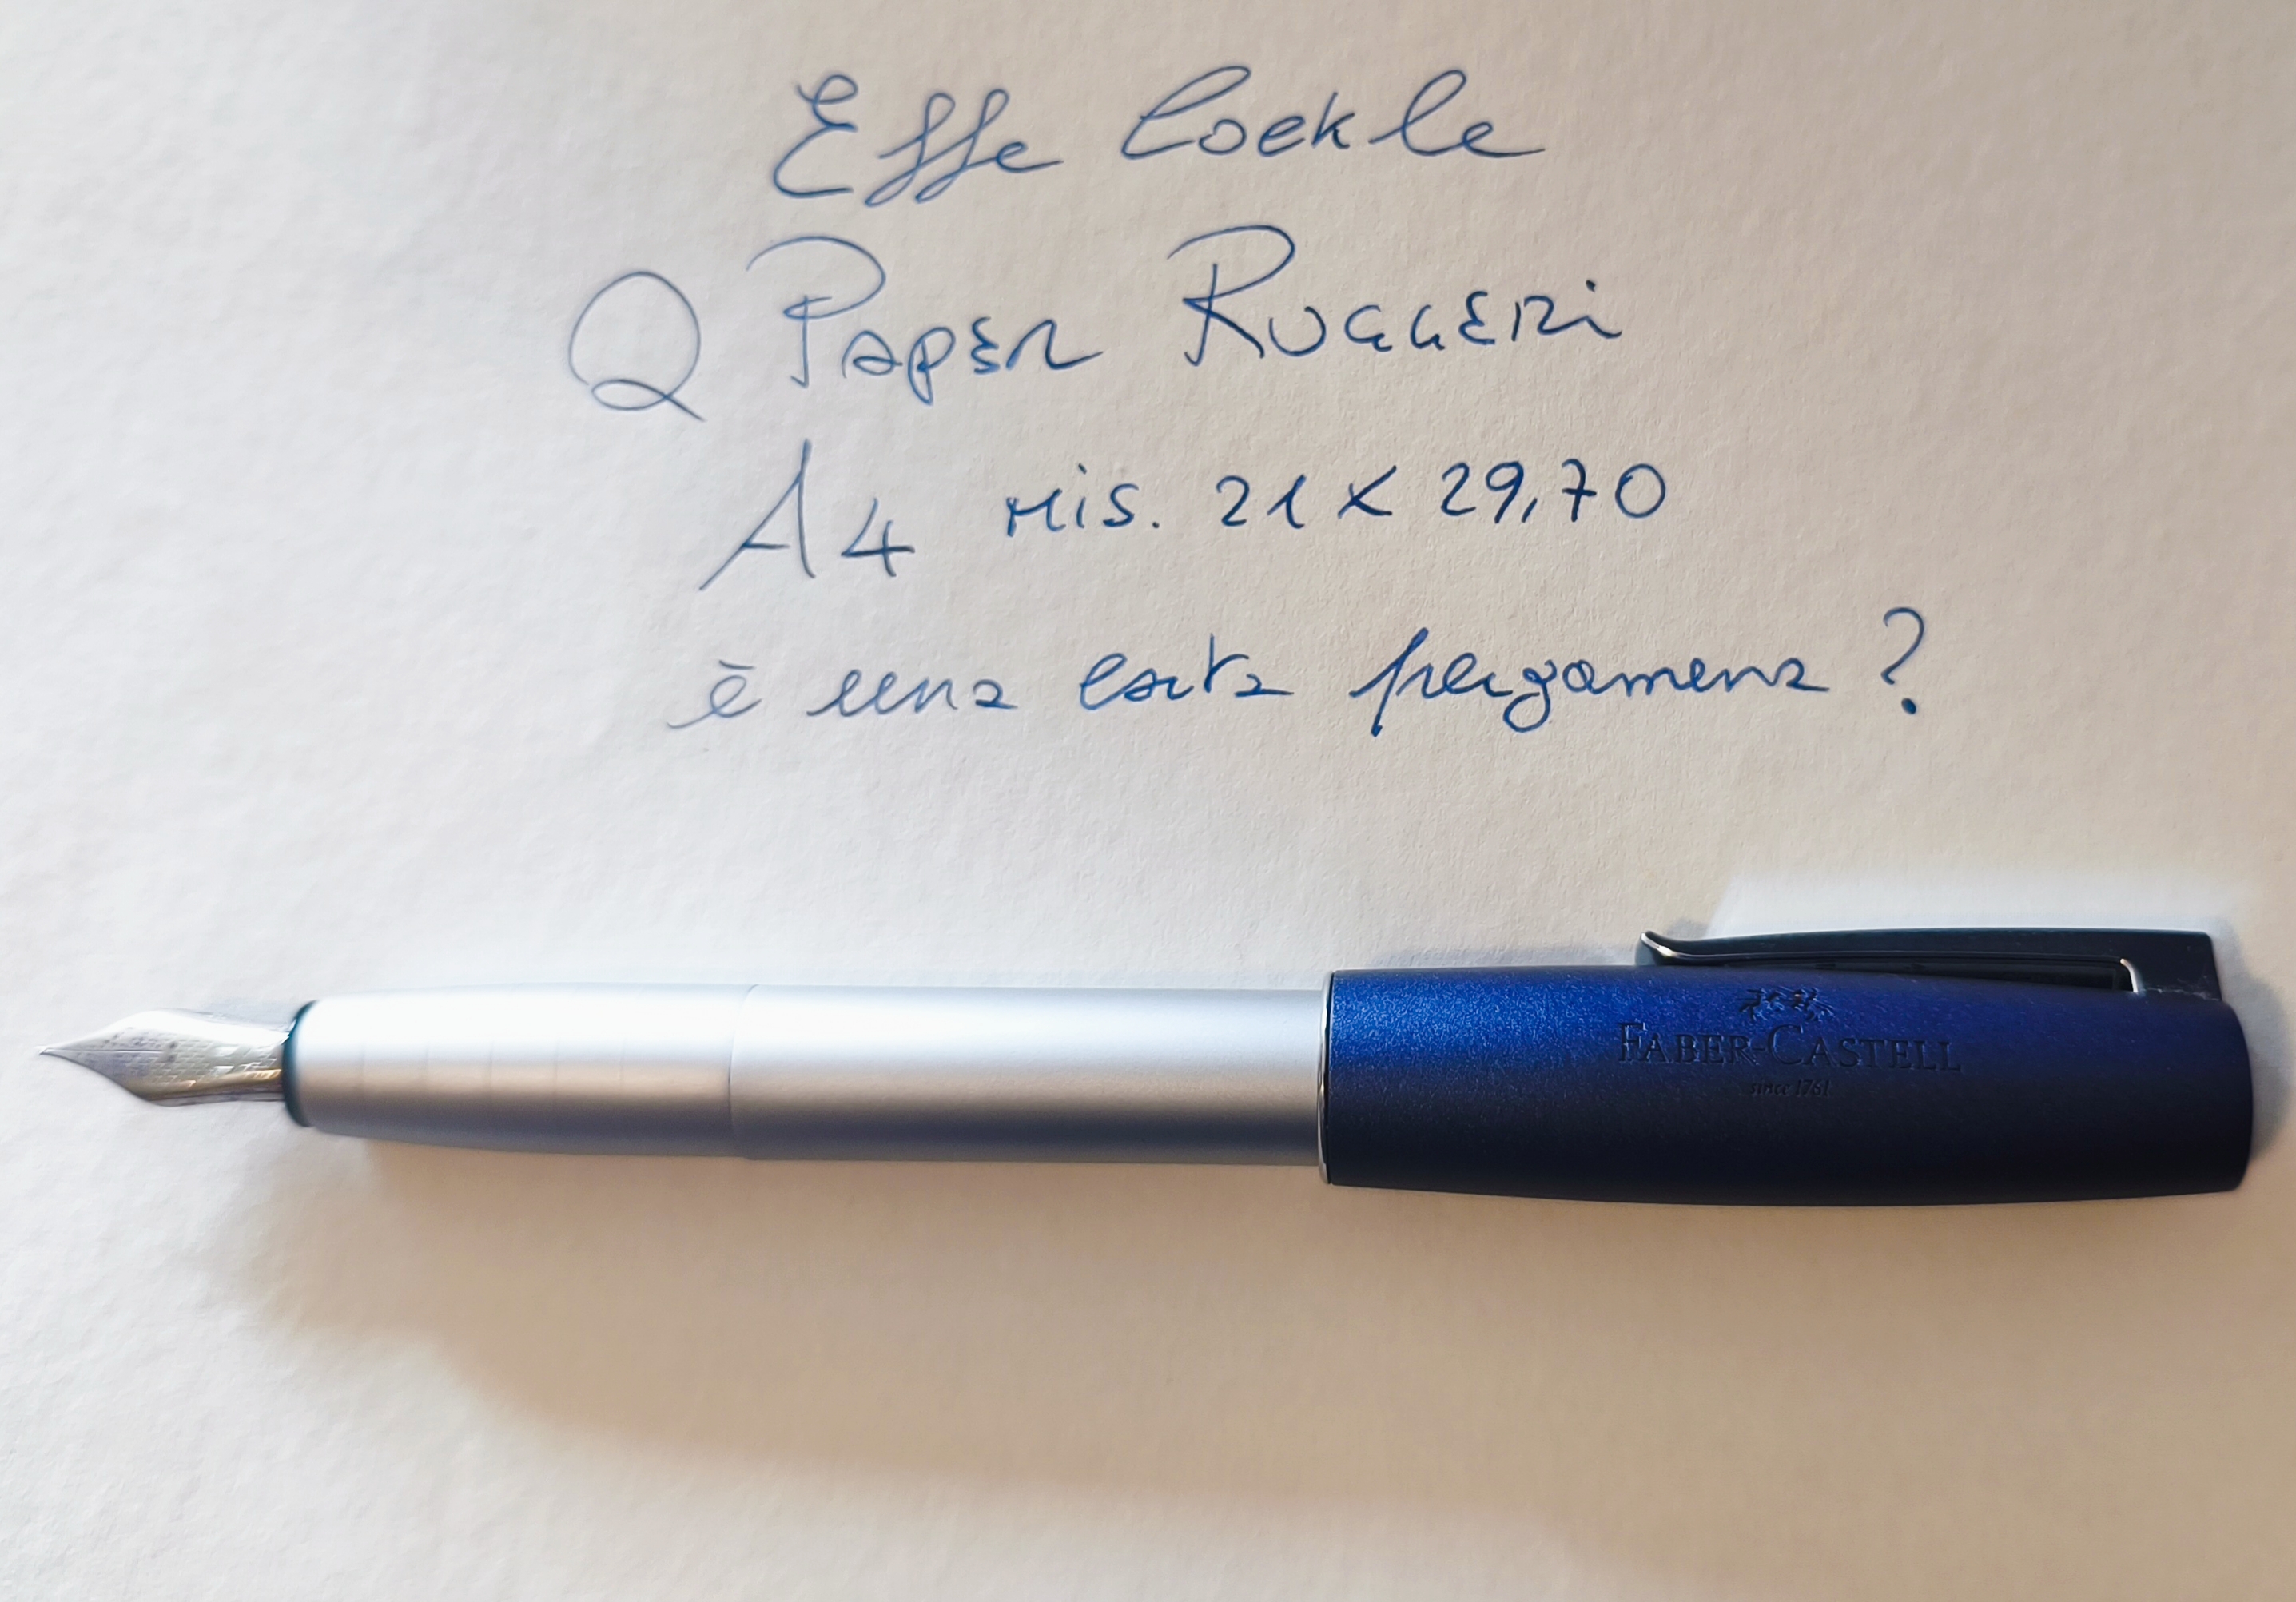 Effe Cockle
Q Paper Ruggeri
A4 mis. 21 x 29,70
è una carta pergamena ?
FABER-CASTELL
since 1761